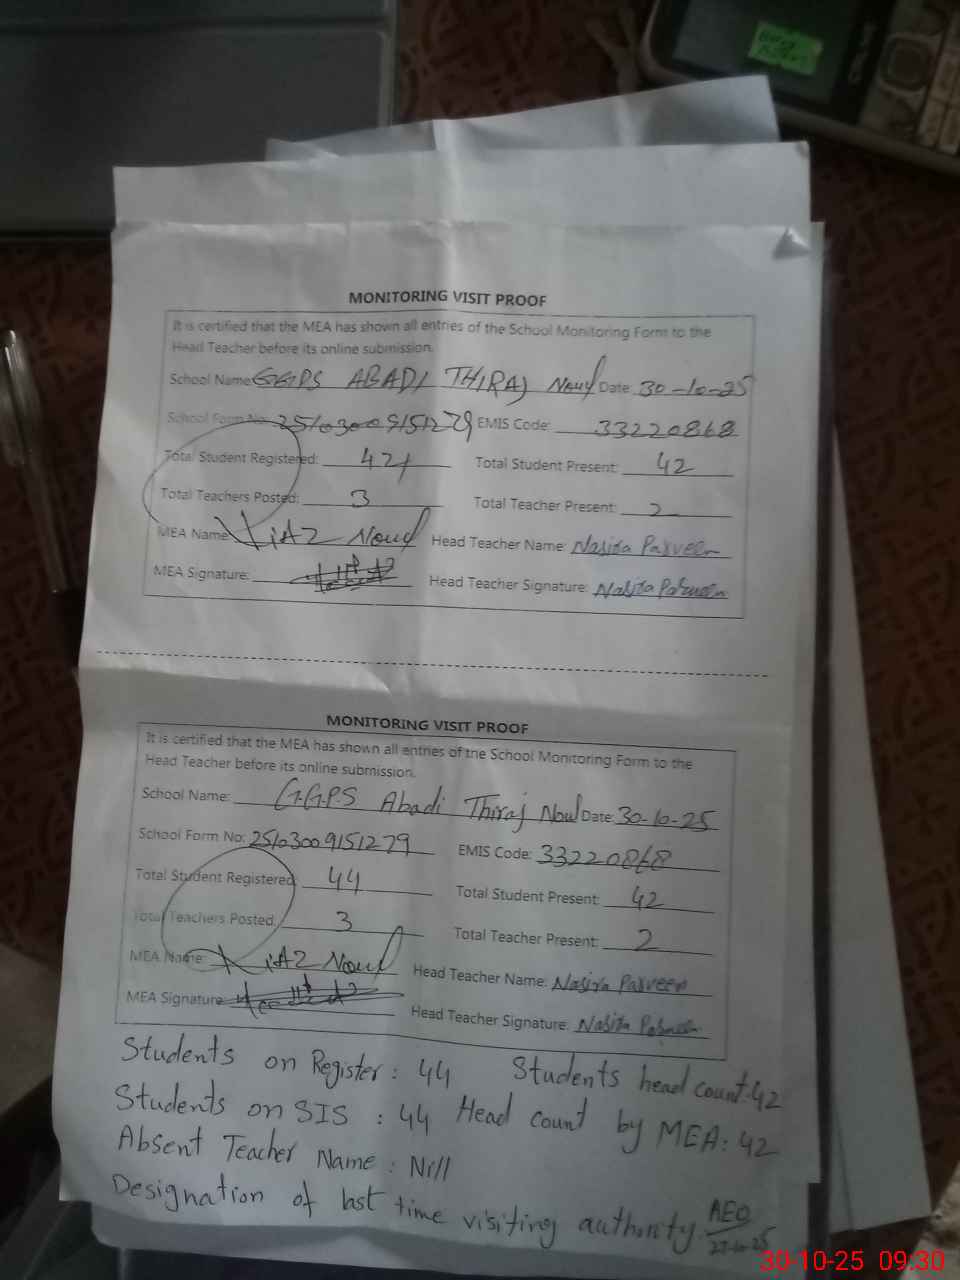 MONITORING VISIT PROOF
It is certified that the MEA has shown all entries of the School Monitoring Form to the
Head Teacher before its online submission.
School Name: GGPS ABADI THIRAJ Noul Date: 30-10-25
School Form No: 25103009151279 EMIS Code: 33220868
Total Student Registered: 44 Total Student Present: 42
Total Teachers Posted: 3 Total Teacher Present: 2
MEA Name: Head Teacher Name: Nasira Parveen
MEA Signature: Head Teacher Signature: Nasira Parveen
MONITORING VISIT PROOF
It is certified that the MEA has shown all entries of the School Monitoring Form to the
Head Teacher before its online submission.
School Name: G.G.P.S Abadi Thiraj Noul Date: 30-10-25
School Form No: 25103009151279 EMIS Code: 33220868
Total Student Registered: 44 Total Student Present: 42
Total Teachers Posted: 3 Total Teacher Present: 2
MEA Name: Head Teacher Name: Nasira Parveen
MEA Signature: Head Teacher Signature: Nasira Parveen
Students on Register: 44 Students head count: 42
Students on SIS : 44 Head count by MEA: 42
Absent Teacher Name : Nill
Designation of last time visiting authority. AEO
30-10-25 09:30